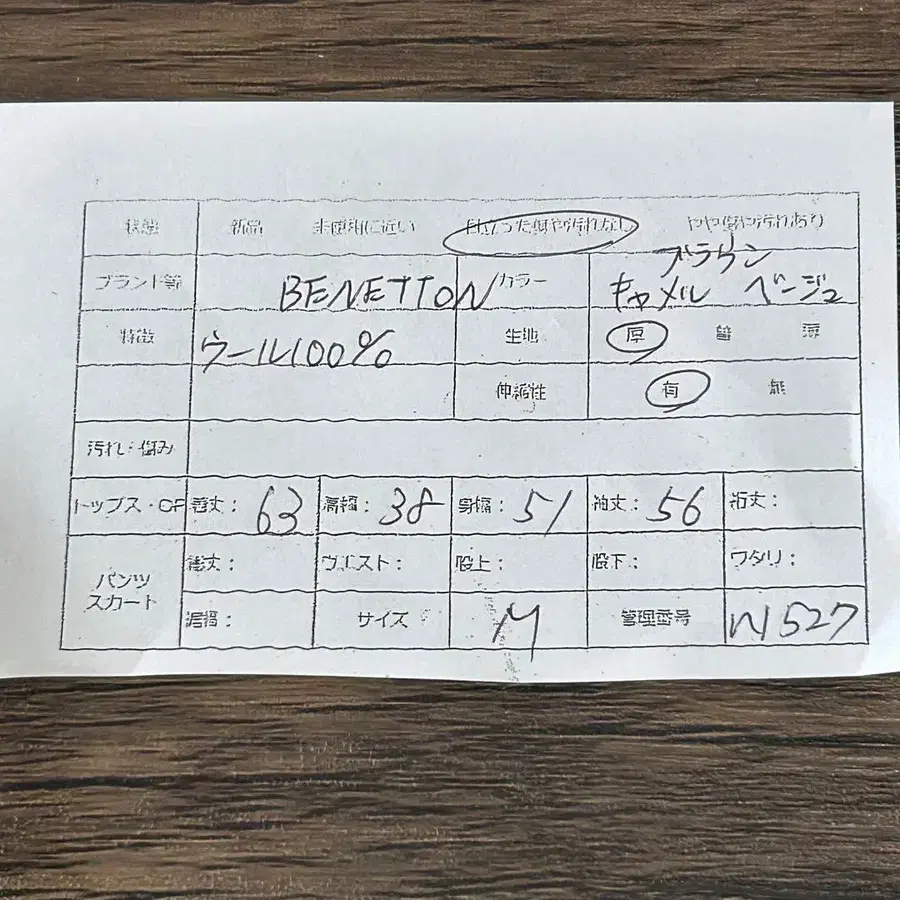 状態 新品 未使用に近い 目立った傷や汚れなし やや傷や汚れあり
ブランド等 BENETTON カラー ブラウン キャメル ベージュ
特徴 ウール100% 生地 厚 普 薄
伸縮性 有 無
汚れ・傷み
トップス・OP 着丈: 63 肩幅: 38 身幅: 51 袖丈: 56 裄丈:
パンツ スカート 総丈: ウエスト: 股上: 股下: ワタリ:
裾幅: サイズ M 管理番号 N527